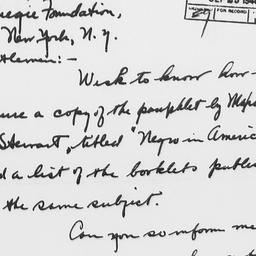 negie Foundation,
New York, N. Y.
tlemen:-
FOR RECORD
Wish to know how-
ure a copy of the pamphlet by Maxw
Stewart, titled "Negro in America
d a list of the booklets publis
the same subject.
Can you so inform me